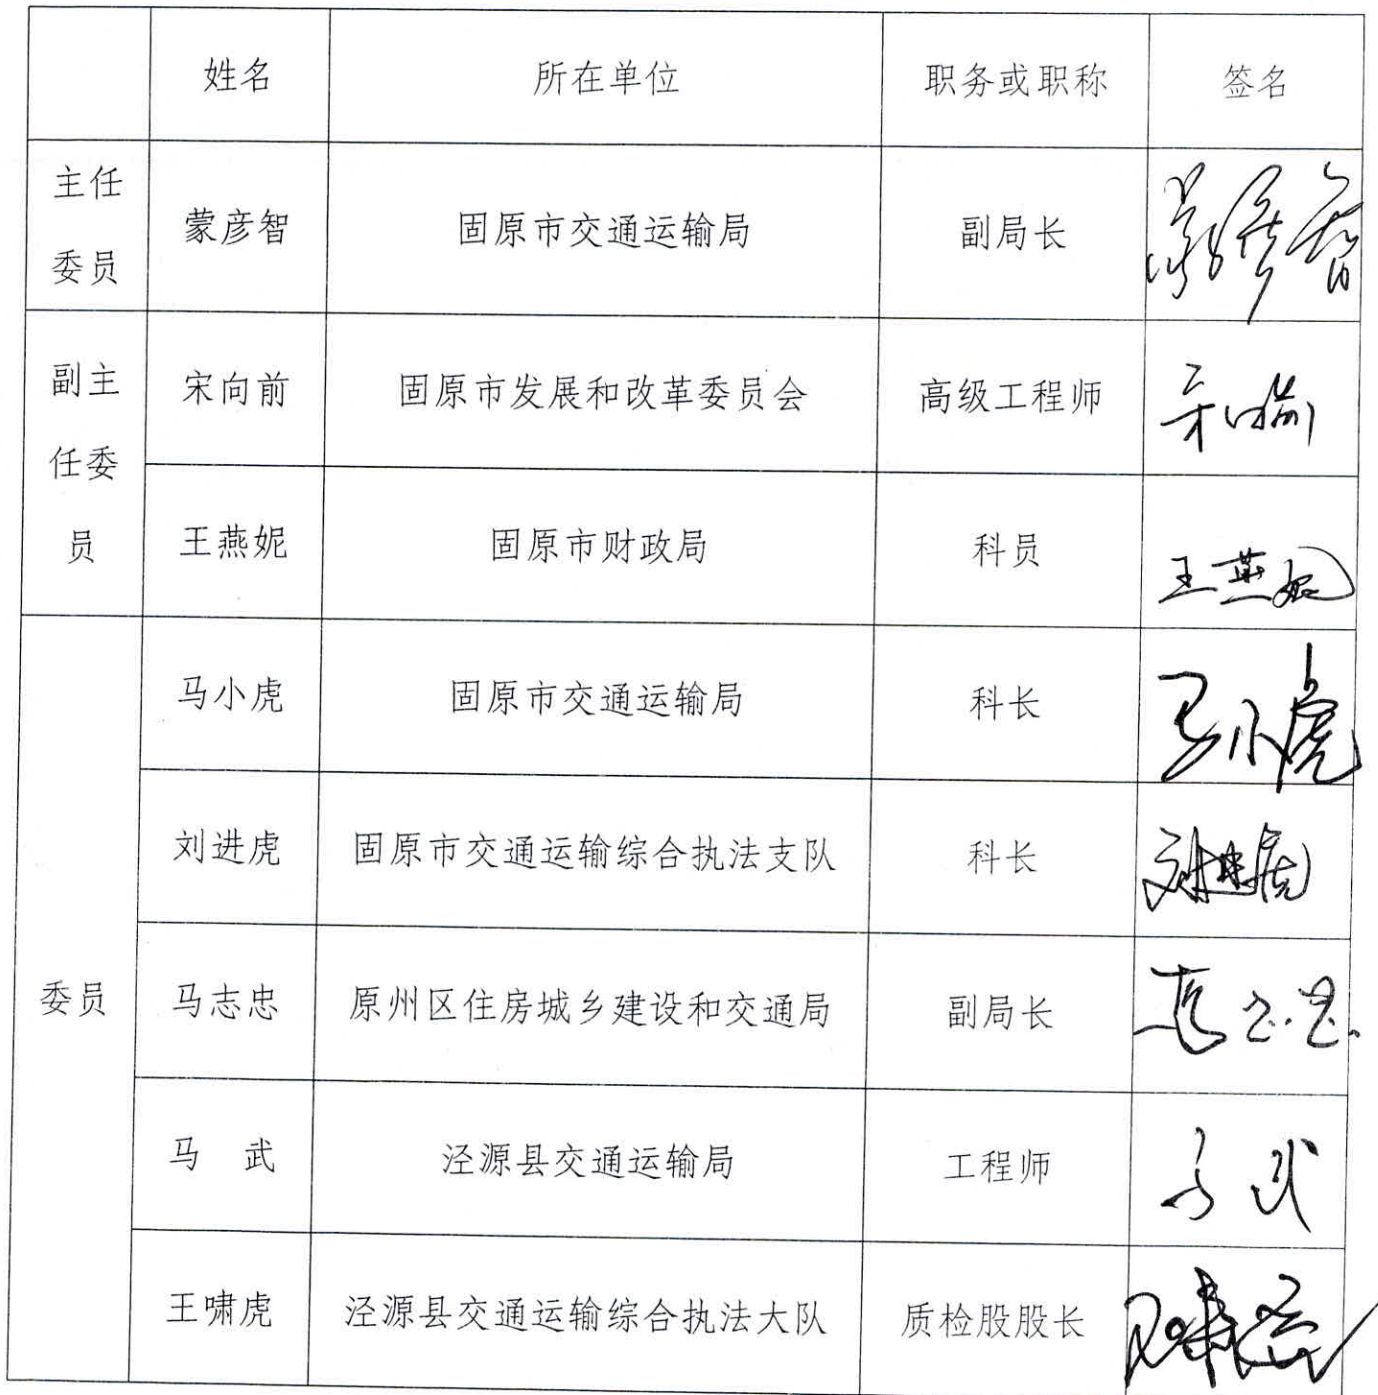 姓名 所在单位 职务或职称 签名
主任委员 蒙彦智 固原市交通运输局 副局长 蒙彦智
副主任委员 宋向前 固原市发展和改革委员会 高级工程师
王燕妮 固原市财政局 科员 王燕妮
委员 马小虎 固原市交通运输局 科长 马小虎
刘进虎 固原市交通运输综合执法支队 科长
马志忠 原州区住房城乡建设和交通局 副局长
马 武 泾源县交通运输局 工程师 马武
王啸虎 泾源县交通运输综合执法大队 质检股股长